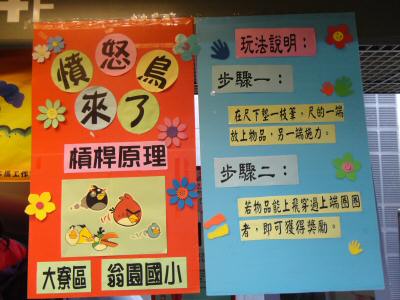 憤怒鳥
來了
槓桿原理
大寮區 翁園國小
玩法說明：
步驟一：
在尺下墊一枝筆，尺的一端
放上物品，另一端施力。
步驟二：
若物品能上飛穿過上端圈圈
者，即可獲得獎勵。